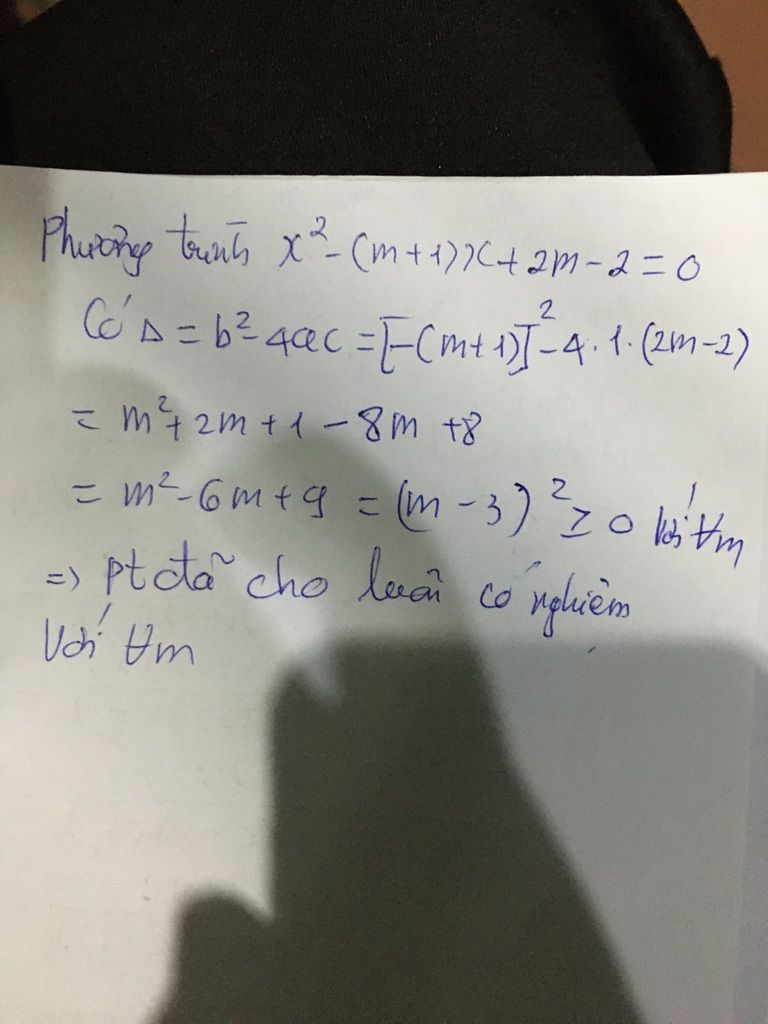 Phương trình x² - (m+1)x + 2m - 2 = 0
Có Δ = b² - 4ac = [-(m+1)]² - 4 . 1 . (2m-2)
= m² + 2m + 1 - 8m + 8
= m² - 6m + 9 = (m - 3)² ≥ 0 với ∀m
=> pt đã cho luôn có nghiệm
Với ∀m